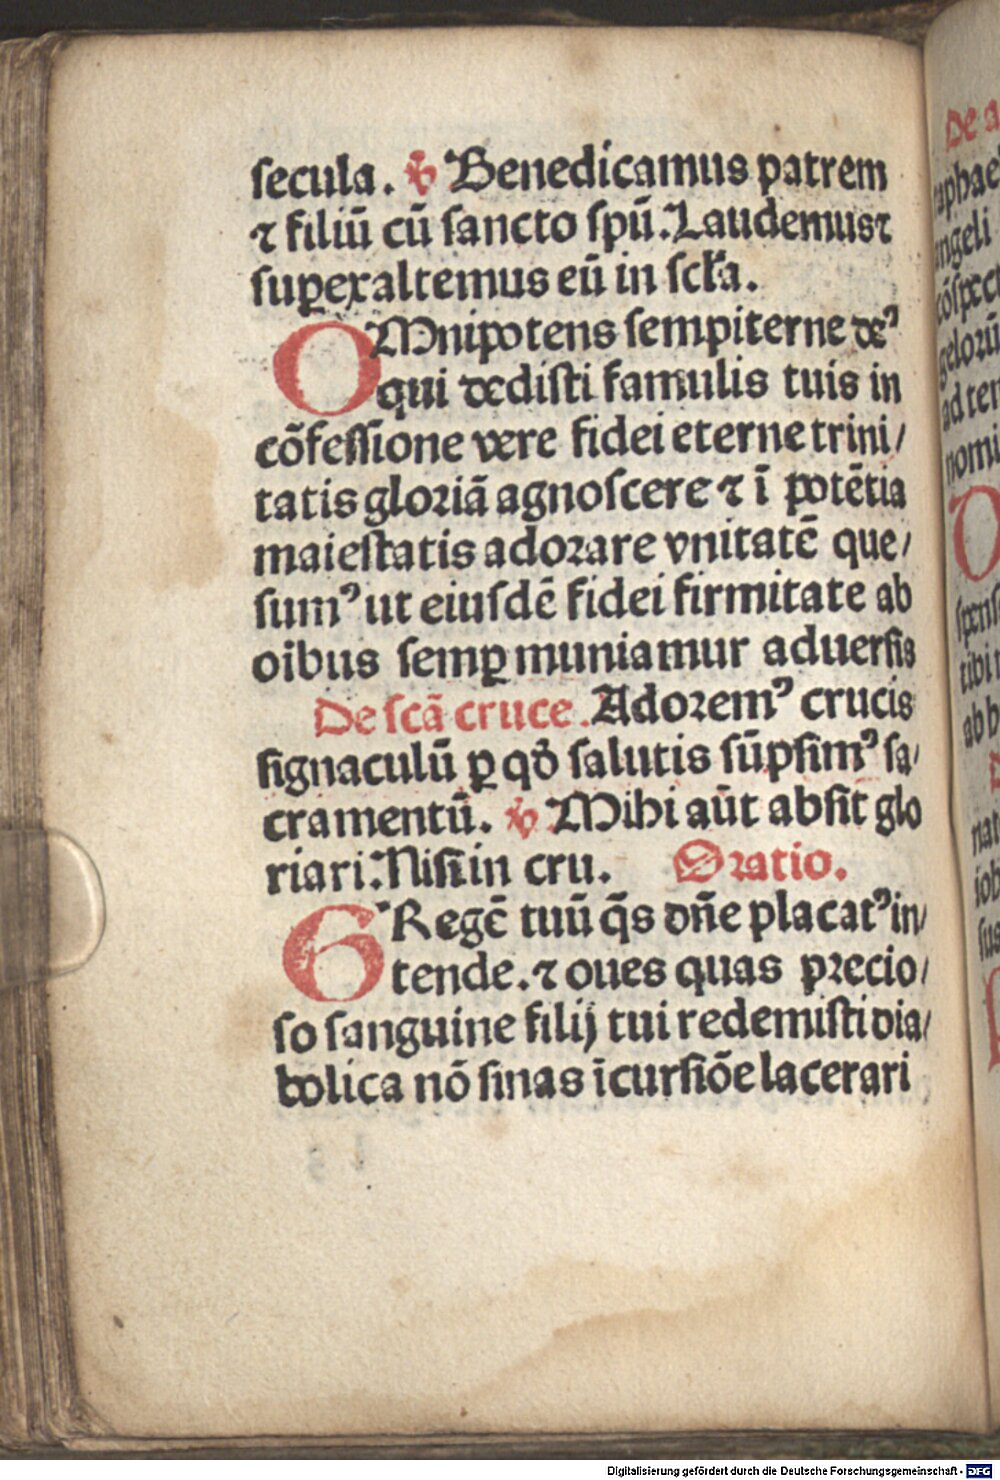 secula. ℣ Benedicamus patrem
⁊ filiū cū sancto spū. Laudemus ⁊
suꝑexaltemus eū in scl̄a.
OMnipotens sempiterne deꝰ
qui dedisti famulis tuis in
cōfessione vere fidei eterne trini/
tatis gloriā agnoscere ⁊ ī potētia
maiestatis adorare vnitatē que/
sumꝰ ut eiusdē fidei firmitate ab
oibus semꝑ muniamur aduersis
De scā cruce. Adoremꝰ crucis
signaculū ꝑ qđ salutis sūpsimꝰ sa/
cramentū. ℣ Mihi aūt absit glo
riari. Nisi in cru. Oratio.
GRegē tuū q̄s dn̄e placatꝰ in/
tende. ⁊ oues quas precio/
so sanguine filij tui redemisti dia/
bolica nō sinas īcursiōe lacerari
De a
raphael
angeli
cōspect
geloru
ad tem
nomi
spens
tibi
ab
nat
ioh
sus
Digitalisierung gefördert durch die Deutsche Forschungsgemeinschaft - DFG